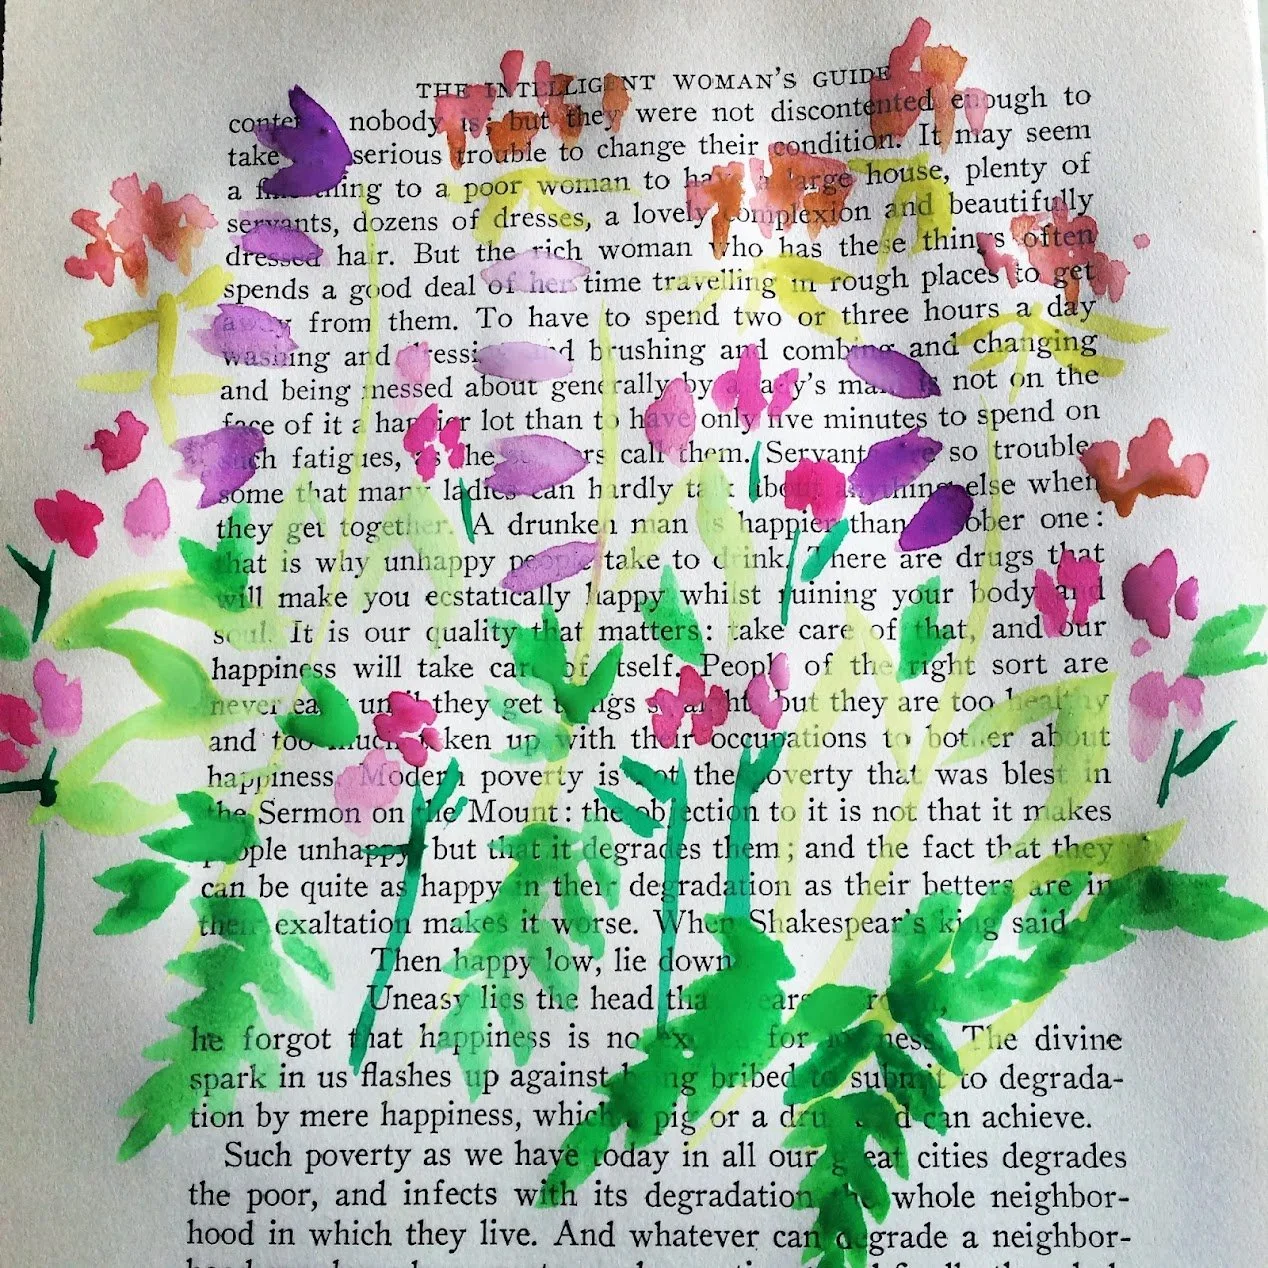 THE INTELLIGENT WOMAN'S GUIDE
nobody is; but they were not discontented enough to
take serious trouble to change their condition. It may seem
a fine thing to a poor woman to have a large house, plenty of
servants, dozens of dresses, a lovely complexion and beautifully
dressed hair. But the rich woman who has these things often
spends a good deal of her time travelling in rough places to get
away from them. To have to spend two or three hours a day
washing and dressing and brushing and combing and changing
and being messed about generally by a lady's maid is not on the
face of it a happier lot than to have only five minutes to spend on
such fatigues, as the soldiers call them. Servants are so trouble-
some that many ladies can hardly talk about anything else when
they get together. A drunken man is happier than a sober one:
that is why unhappy people take to drink. There are drugs that
will make you ecstatically happy whilst ruining your body and
soul. It is our quality that matters: take care of that, and our
happiness will take care of itself. People of the right sort are
never easy until they get things straight; but they are too healthy
and too much taken up with their occupations to bother about
happiness. Modern poverty is not the poverty that was blest in
the Sermon on the Mount: the objection to it is not that it makes
people unhappy, but that it degrades them; and the fact that they
can be quite as happy in their degradation as their betters are in
their exaltation makes it worse. When Shakespear's king said
Then happy low, lie down
Uneasy lies the head that wears a crown,
he forgot that happiness is no excuse for lowness. The divine
spark in us flashes up against being bribed to submit to degrada-
tion by mere happiness, which a pig or a drunkard can achieve.
Such poverty as we have today in all our great cities degrades
the poor, and infects with its degradation the whole neighbor-
hood in which they live. And whatever can degrade a neighbor-